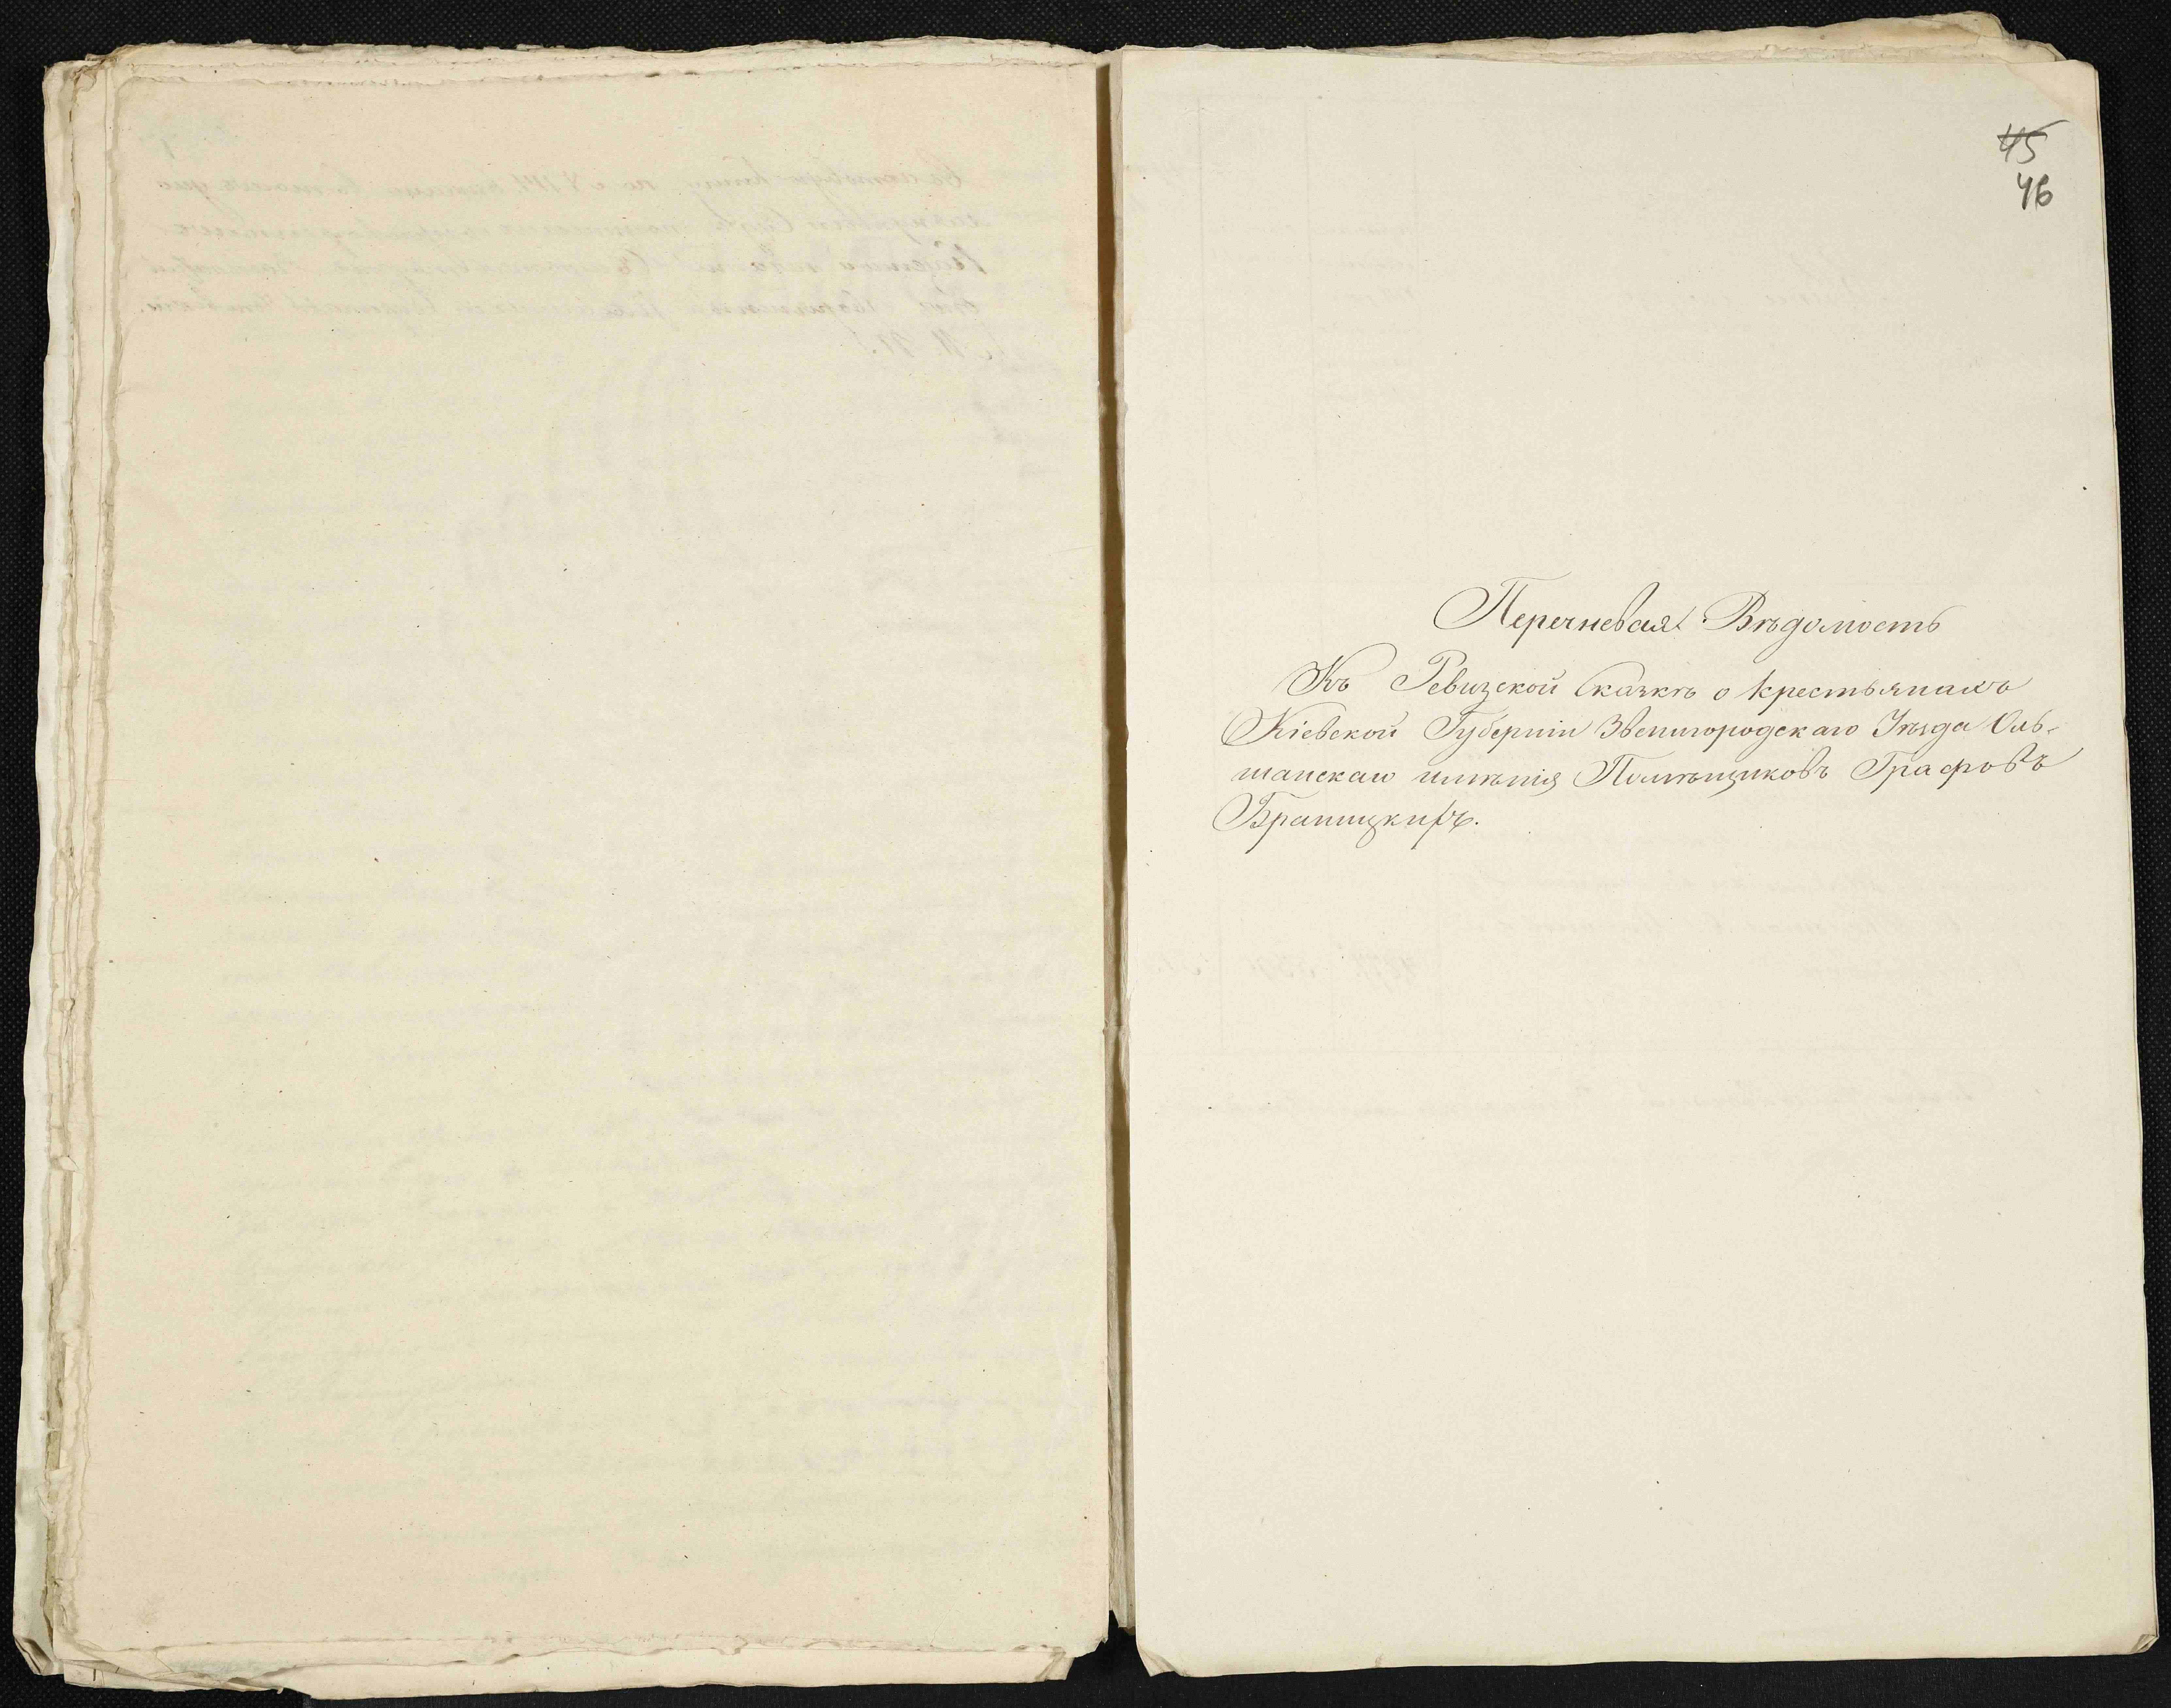 45
46
Перечневая Вѣдомость
Къ Ревизской Сказкѣ о крестьянахъ
Кіевской Губерніи Звенигородскаго Уѣзда Оль-
шанскаго имѣнія Помѣщиковъ Графовъ
Браницкихъ.